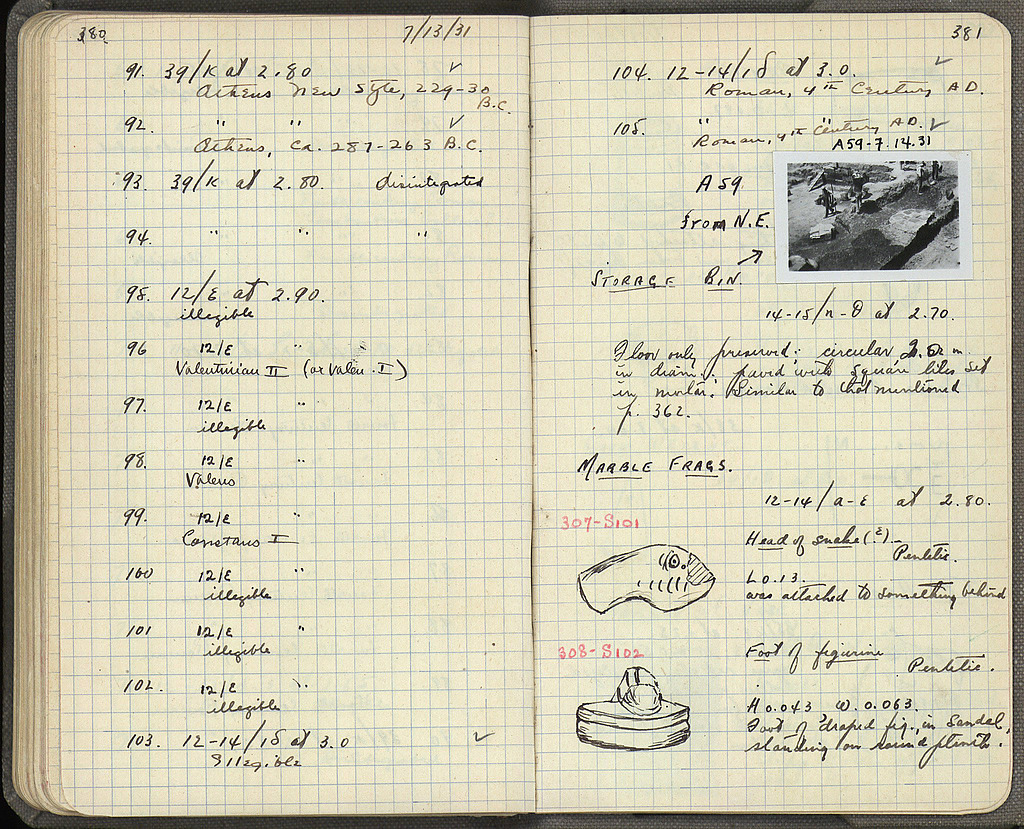 380
7/13/31
91. 39/K at 2.80 ✓
Athens New Style, 229-30
B.C.
92. " " ✓
Athens, ca. 287-263 B.C.
93. 39/K at 2.80 disintegrated
94. " " "
95. 12/E at 2.90.
illegible
96 12/E "
Valentinian II (or Valen. I)
97. 12/E "
illegible
98. 12/E "
Valens
99. 12/E "
Constans I
100 12/E "
illegible
101 12/E "
illegible
102. 12/E "
illegible
103. 12-14/ at 3.0 ✓
Illegible
381
104. 12-14/ at 3.0. ✓
Roman, 4th Century A.D.
105. " " ✓
Roman, 4th Century A.D.
A59-7.14.31
A59
from N.E.
STORAGE BIN.
14-15/ at 2.70.
Floor only preserved: circular m.
in diam.; paved with square tiles set
in mortar. Similar to that mentioned
p. 362.
MARBLE FRAGS.
12-14/a-E at 2.80.
307-S101
Head of snake (?)-
Pentelic.
L 0.13.
was attached to something behind
308-S102
Foot of figurine
Pentelic.
H 0.043 W. 0.063.
Foot of draped fig., in sandal,
standing on round plinth.